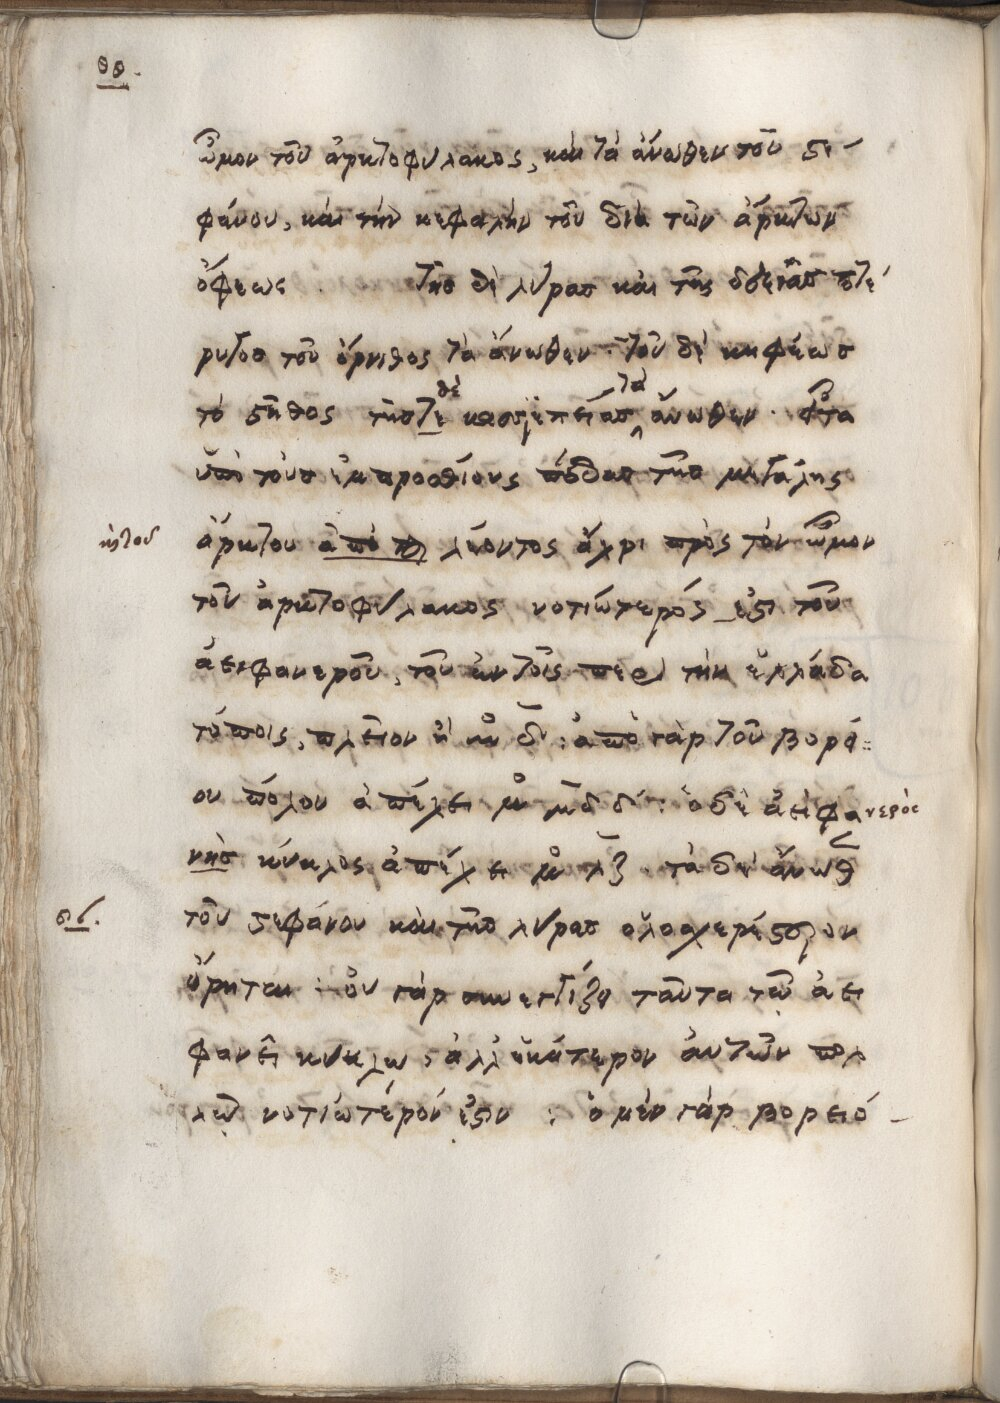 θθ.
ὦμον τοῦ ἀρκτοφύλακος, καὶ τὰ ἄνωθεν τοῦ στε-
φάνου, καὶ τὴν κεφαλὴν τοῦ διὰ τῶν ἄρκτων
ὄφεως. τῆς δὲ λύρας καὶ τῆς δεξιᾶς πτέ
ρυγος τοῦ ὄρνιθος τὰ ἄνωθεν. τοῦ δὲ κηφέως
τὸ στῆθος τῆς τε δὲ κασσιεπείας τὰ ἄνωθεν.
ὑπὸ τοὺς ἐμπροσθίους πόδας τῆς μεγάλης
ἄρκτου ἀπὸ λέοντος ἄχρι πρὸς τὸν ὦμον
τοῦ ἀρκτοφύλακος νοτιώτερός ἐστι τοῦ
ἀειφανεροῦ, τοῦ ἐν τοῖς περὶ τὴν ἑλλάδα
τόποις, πλεῖον ἢ μο δ: ἀπὸ γὰρ τοῦ βορεί=
ου πόλου ἀπέχει μο μα δ δ: ὁ δὲ ἀειφανερὸς
νης κύκλος ἀπέχει μο λζ. τὰ δὲ ἄνωθ
στ.
τοῦ στεφάνου καὶ τῆς λύρας ὁλοσχερέστερον
εἴρηται: οὐ γὰρ συνεγγίζει ταῦτα τῷ ἀει
φανεῖ κύκλω, ἀλλ' ἑκάτερον αὐτῶν πολ
λῷ νοτιώτερόν ἐστιν: ὁ μὲν γὰρ βορειό-